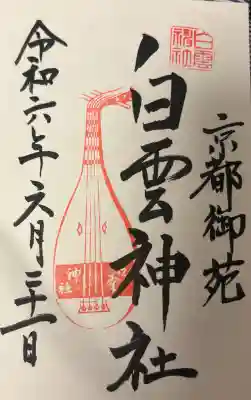 京都御苑
白雲神社
白雲
神社
神社
令和六年六月二十一日